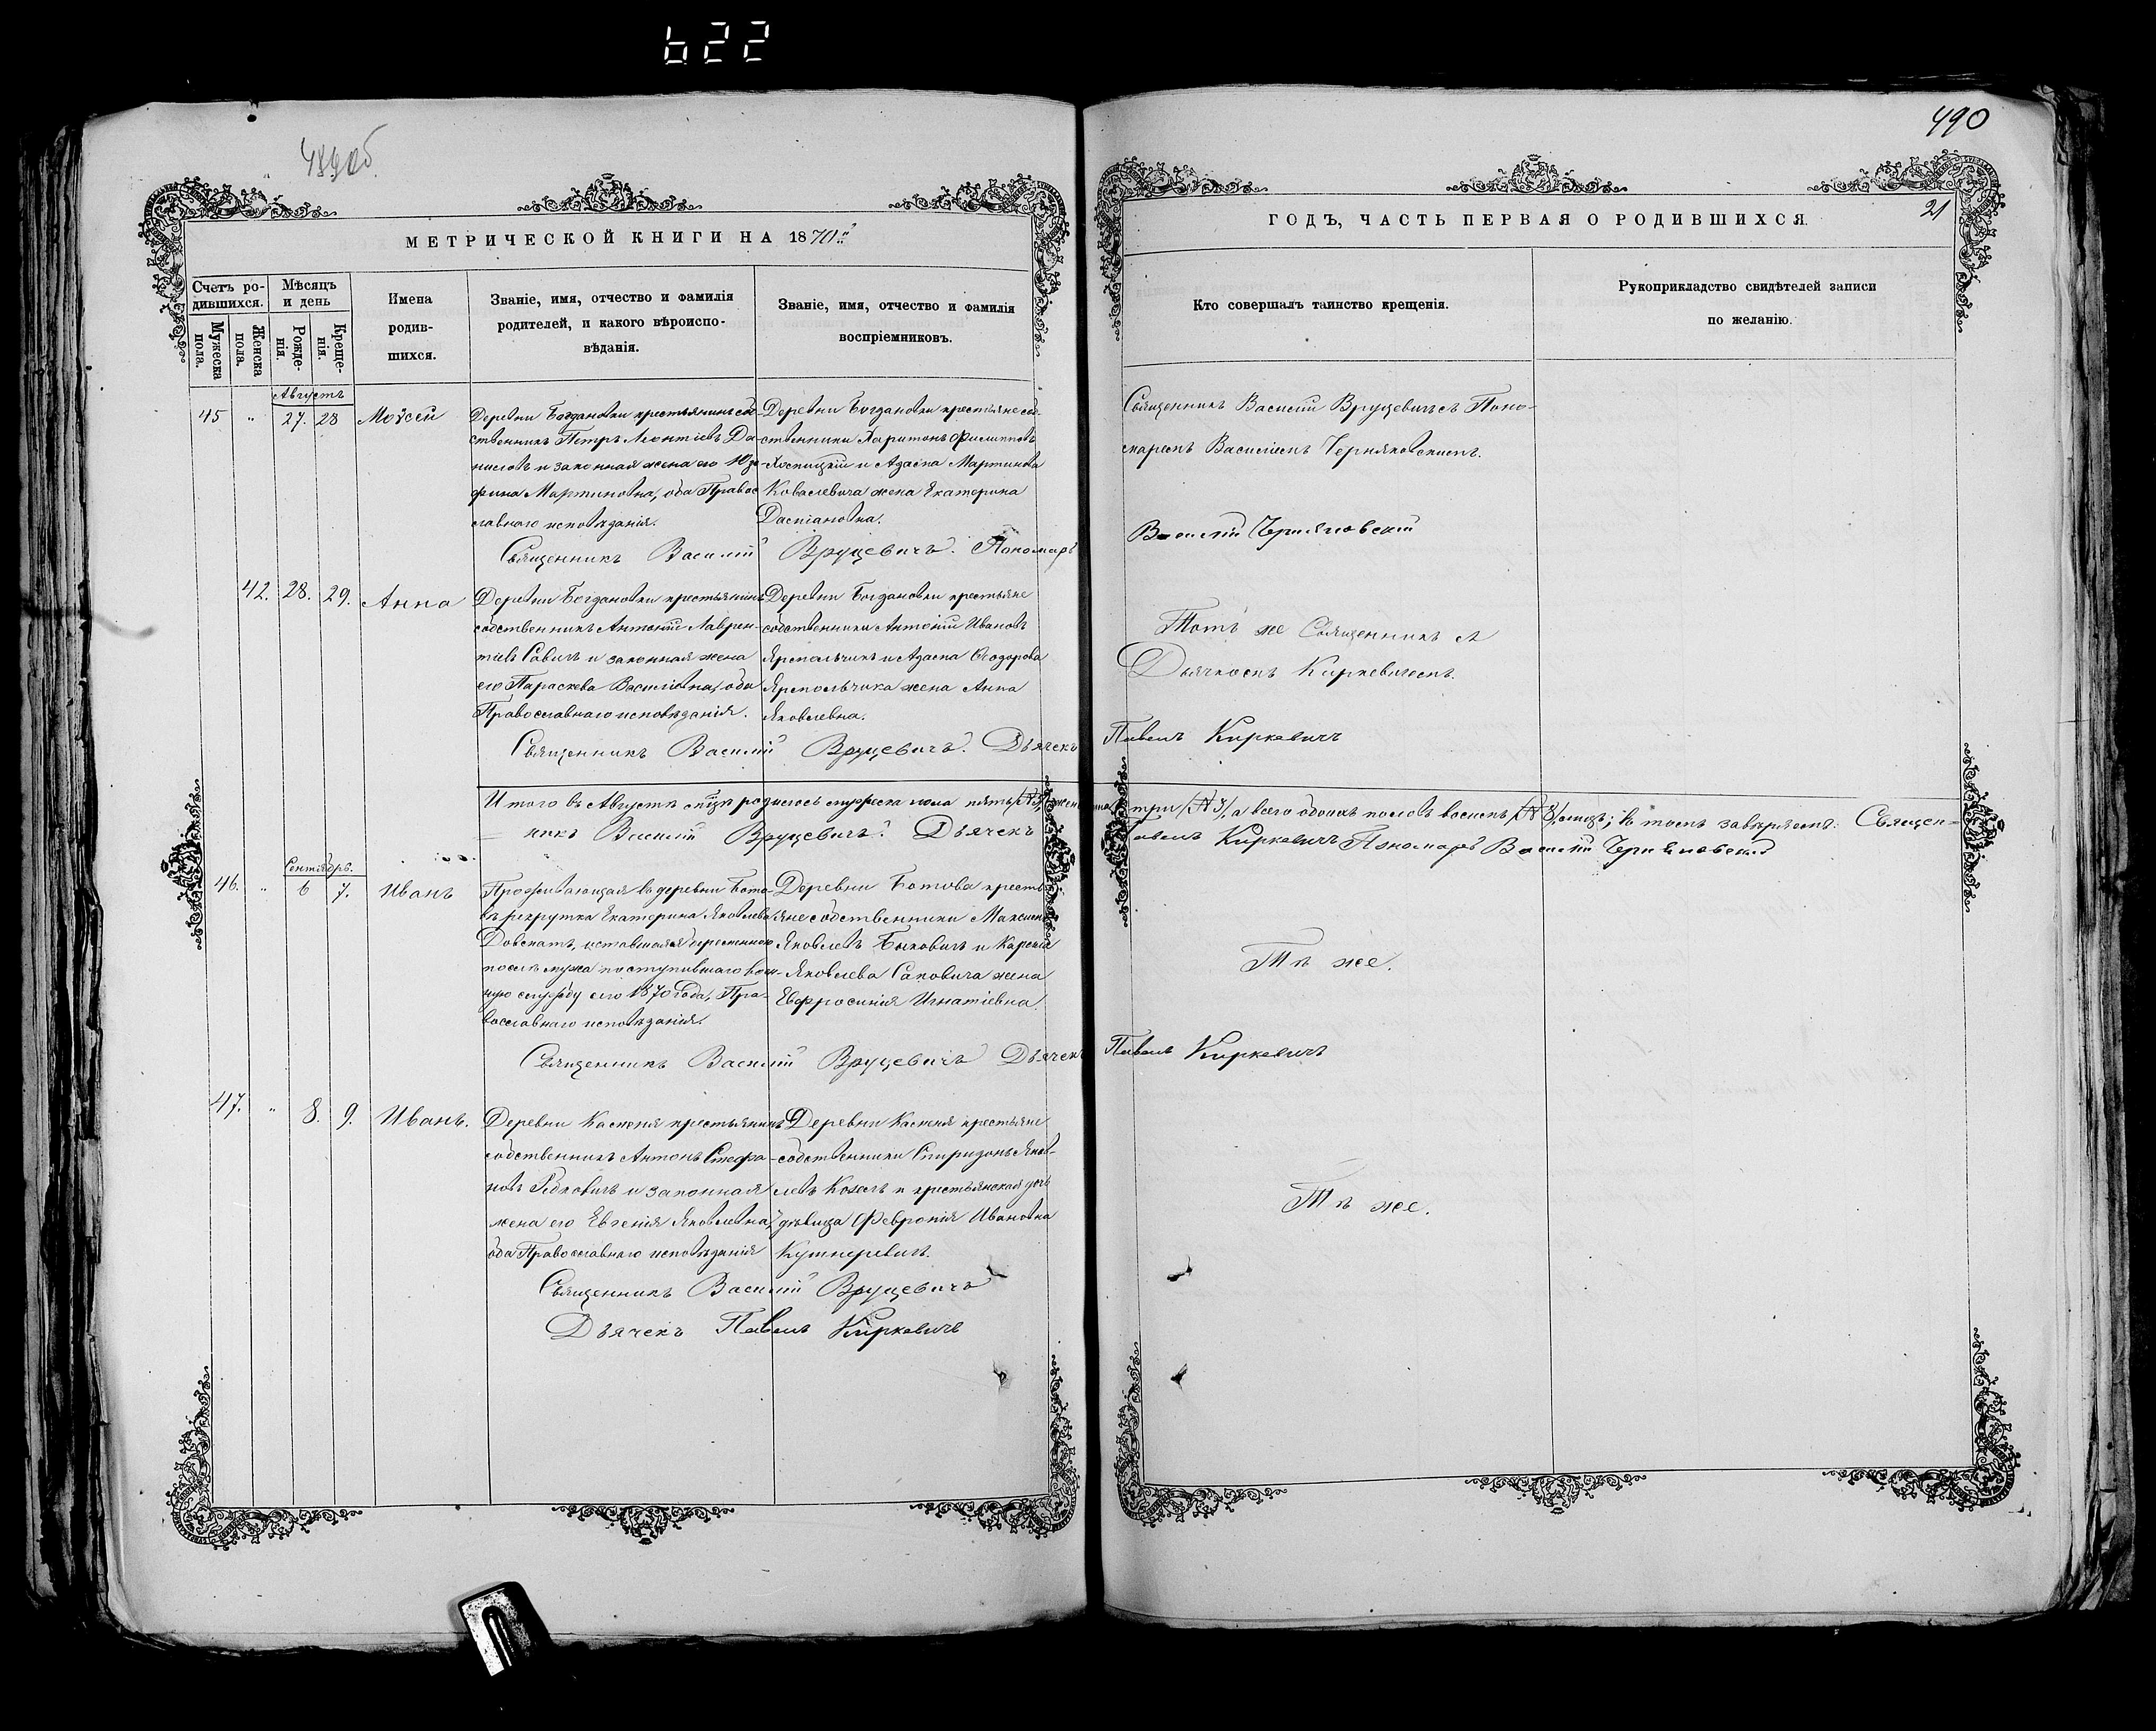 622
490
МЕТРИЧЕСКОЙ КНИГИ НА 1870й
ГОДЪ, ЧАСТЬ ПЕРВАЯ О РОДИВШИХСЯ.
21
Счетъ ро-
дившихся.
Мужеска
пола.
Женска
пола.
Мѣсяцъ
и день
Рожде-
нія.
Креще-
нія.
Имена
родив-
шихся.
Званіе, имя, отчество и фамилія
родителей, и какого вѣроиспо-
вѣданія.
Званіе, имя, отчество и фамилія
воспріемниковъ.
Кто совершалъ таинство крещенія.
Рукоприкладство свидѣтелей записи
по желанію.
Августъ
45 " 27. 28 Моѵсей
Деревни Богдановки крестьянинъ соб-
ственникъ Петръ Леонтіевъ Да-
ниловъ и законная жена его Юзе-
фина Мартиновна, оба Правос
славнаго исповѣданія.
Деревни Богдановки крестьяне соб-
ственники Харитонъ Филипповъ
и Адама Мартинова
Ковалевича жена Екатерина
Даміановна.
Священникъ Василій Вруцевичъ съ Поно-
маремъ Василіемъ Черняковскимъ.
Священникъ Василій Вруцевичъ. Пономарь
Василій Черняковскій
42. 28. 29. Анна
Деревни Богдановки крестьянинъ
собственникъ Антоній Лаврен-
тіевъ Савичъ и законная жена
его Параскева Василіевна, оба
Православнаго исповѣданія.
Деревни Богдановки крестьяне
собственники Антоній Ивановъ
Ярмольчикъ и Адама Ѳеодорова
Ярмольчика жена Анна
Яковлевна.
Тотъ же Священникъ съ
Дьячкомъ Киркевичемъ.
Священникъ Василій Вруцевичъ. Дьячекъ
Павелъ Киркевичъ
Итого въ Августѣ мѣсяцѣ родилось мужеска пола пять /№ 5/, женска три /№ 3/, а всего обоихъ половъ восемь /№ 8/ лицъ; въ томъ завѣряемъ: Священ-
никъ Василій Вруцевичъ. Дьячекъ Павелъ Киркевичъ Пономарь Василій Черняковскій
Сентябрь.
46. " 6 7. Иванъ
Проживающая въ деревни Бото-
въ рекрутка Екатерина Яковлева
Довнатъ, оставшаяся беременною
послѣ мужа поступившаго въ воен-
ную службу сего 1870 года, Пра-
вославнаго исповѣданія.
Деревни Ботова кресть-
яне собственники Максимъ
Яковлевъ Быковичъ и Карнія
Яковлева Саковича жена
Евфросинія Игнатіевна.
Тѣ же.
Священникъ Василій Вруцевичъ Дьячекъ
Павелъ Киркевичъ
47. " 8. 9. Иванъ.
Деревни Каменя крестьянинъ
собственникъ Антонъ Стефа-
новъ Рабковичъ и законная
жена его Евгенія Яковлевна,
оба Православнаго исповѣданія
Деревни Каменя крестьяне
собственники Спиридонъ Яков-
левъ Козелъ и крестьянская дочь
дѣвица Февронія Ивановна
Кушнеревичъ.
Тѣ же.
Священникъ Василій Вруцевичъ
Дьячекъ Павелъ Киркевичъ